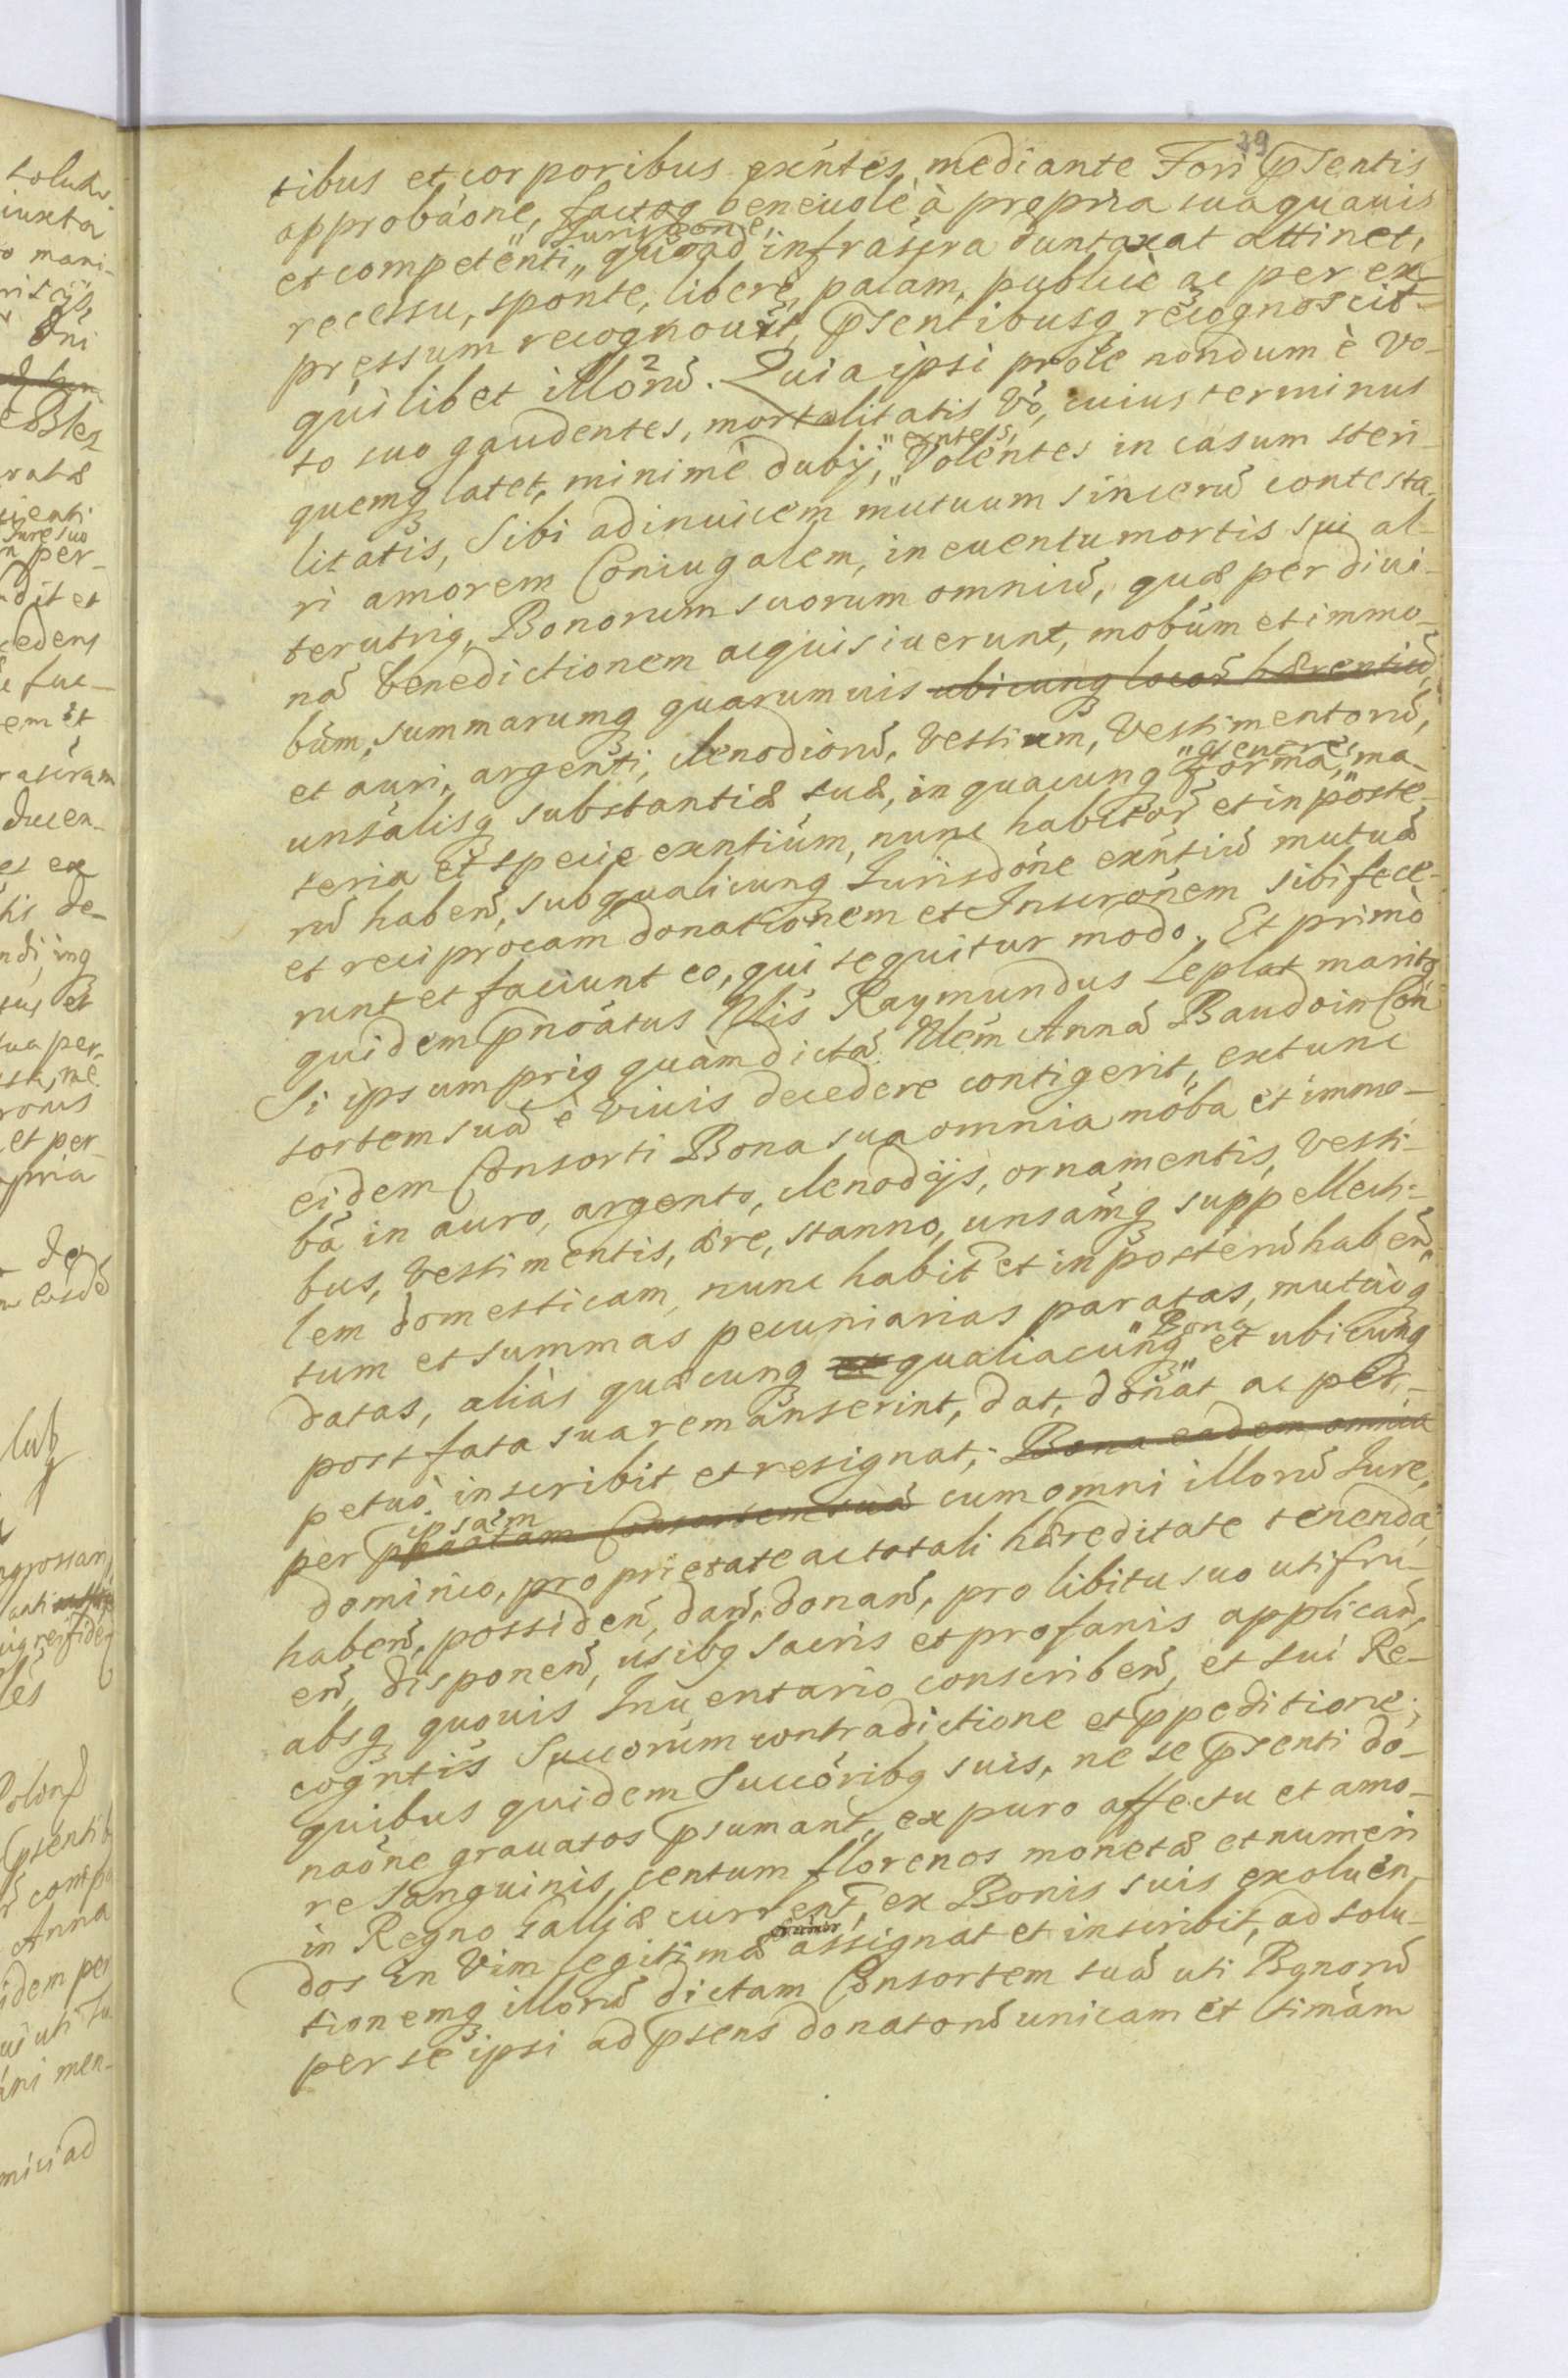 29
tibus et corporibus exntes, mediante Fori pñsentis
approbaõne, factoq beneuole à propria sua quauis
et competenti „ Jurisdõne, quoad infrascra duntaxat attinet,
recessu, sponte, libere, palam, publice ac per ex-
pressum recognouit, pñsentibusq recognoscit
quilibet illorũ. Quia ipsi prole nondum è vo-
to suo gaudentes, mortalitatis Vò, cuius terminus
quemq latet, minimè dubij, „exntes, Volentes in casum steri-
litatis, Sibi adinuicem mutuum sincerũ contesta-
ri amorem Coniugalem, in euentu mortis sui al-
terutriq, Bonorum suorum omniũ, quæ per diui-
nã benedictionem acquisiuerunt, mobũm et immo-
bũm, summarumq quarumuis ubicunq locor̃ hærentiũ,
et auri, argenti, clenodiorũ, Vestium, Vestimentorũ,
unsalisq substantiæ suæ, in quacunq „genere, forma, ma-
teria et specie exntium, nunc habitor̃ et in poste-
rũ habeñ, sub qualicunq Jurisdõne exñtiũ mutuã
et reciprocam donationem et Inscrõnem sibi fece-
runt et faciunt eo, qui sequitur modo. Et primò
quidem pñõatus Nlis Raymundus Leplat maritq
Si ipsum priq quàm dictã Nlem Annã Baudoin Con
sortem suã è viuis decedere contigerit, extunc
eidem Consorti Bona sua omnia moba et immo-
ba in auro, argento, clenodijs, ornamentis, Vesti-
bus, Vestimentis, ære, stanno, unsamq suppellecti-
lem domesticam, nunc habit et in posterũ habeñ,
tum et summas pecuniarias paratas, mutuòq
datas, aliàs quæcunq et qualiacunq „Bona et ubicunq
post fata sua remanserint, dat, donat ac per-
petuò inscribit et resignat, Bona eadem omnia
per ipsam pñõatam Consortem suã cum omni illorũ Jure,
dominio, proprietate ac totali hæreditate tenenda
habeñ, possideñ, dañ, donañ, pro libitu suo utifru-
eñ, disponeñ, usibq sacris et profanis applicañ,
absq quouis Inuentario conscribeñ, et sui Re-
cogñtis Succorum contradictione et ppeditione;
quibus quidem Succoribq suis, ne se pñsenti do-
naõne grauatos psumant, ex puro affectu et amo-
re sanguinis, centum florenos monetæ et numeri
in Regno Galliæ current, ex Bonis suis exoluen-
dos in Vim legitimæ assignat et inscribit, ad solu-
tionemq illorũ dictam Consortem suã uti Bonorũ
per se ipsi ad pñsens donatorũ unicam et ltimam